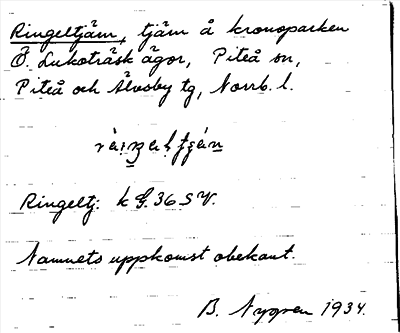 Ringeltjärn, tjärn å kronoparken
Ö. Lukoträsk ägor, Piteå sn,
Piteå och Älvsby tg, Norrb. l.
Ringeltj: k G. 36 S V.
Namnets uppkomst obekant.
B. Nygren 1934.